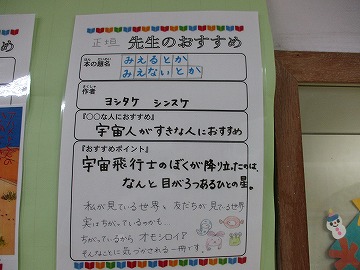 正垣 先生のおすすめ
本の題名
ほん だいめい
みえるとか
みえないとか
さくしゃ
作者
ヨシタケ シンスケ
『○○な人におすすめ』
宇宙人がすきな人におすすめ
『おすすめポイント』
宇宙飛行士のぼくが降り立ったのは、
なんと目が3つあるひとの星。
私が見ている世界と友だちが見ている世界
実はちがっているのかも…
ちがっているからオモシロイ!?
そんなことに気づかされる一冊です。
め